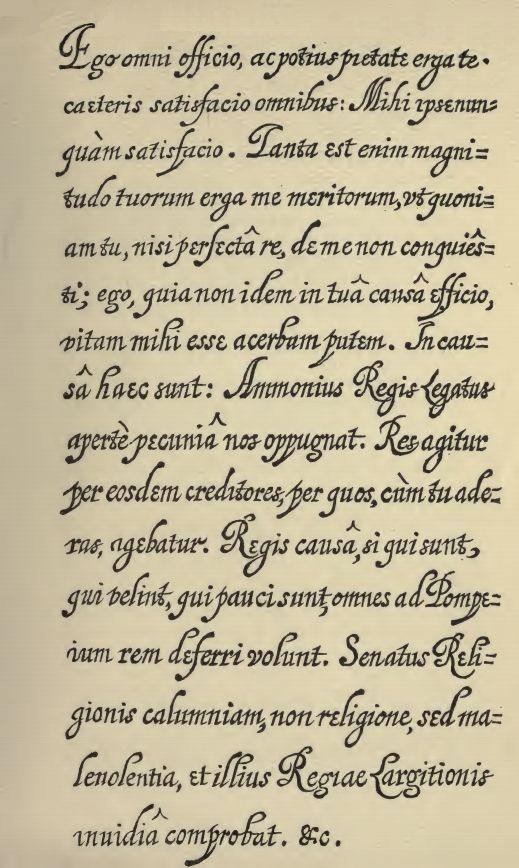 Ego omni officio, ac potius pietate erga te.
caeteris satisfacio omnibus: Mihi ipse nun=
quàm satisfacio. Tanta est enim magni=
tudo tuorum erga me meritorum, vt quoni=
am tu, nisi perfectâ re, de me non conquiês=
ti; ego, quia non idem in tuâ causâ efficio,
vitam mihi esse acerbam putem. In cau=
sâ haec sunt: Ammonius Regis Legatus
apertè pecuniâ nos oppugnat. Res agitur
per eosdem creditores, per quos, cùm tu ade=
ras, agebatur. Regis causâ, si qui sunt,
qui velint, qui pauci sunt, omnes ad Pompe=
ium rem deferri volunt. Senatus Reli=
gionis calumniam, non religione, sed ma=
levolentia, et illius Regiae Largitionis
inuidiâ comprobat. &c.